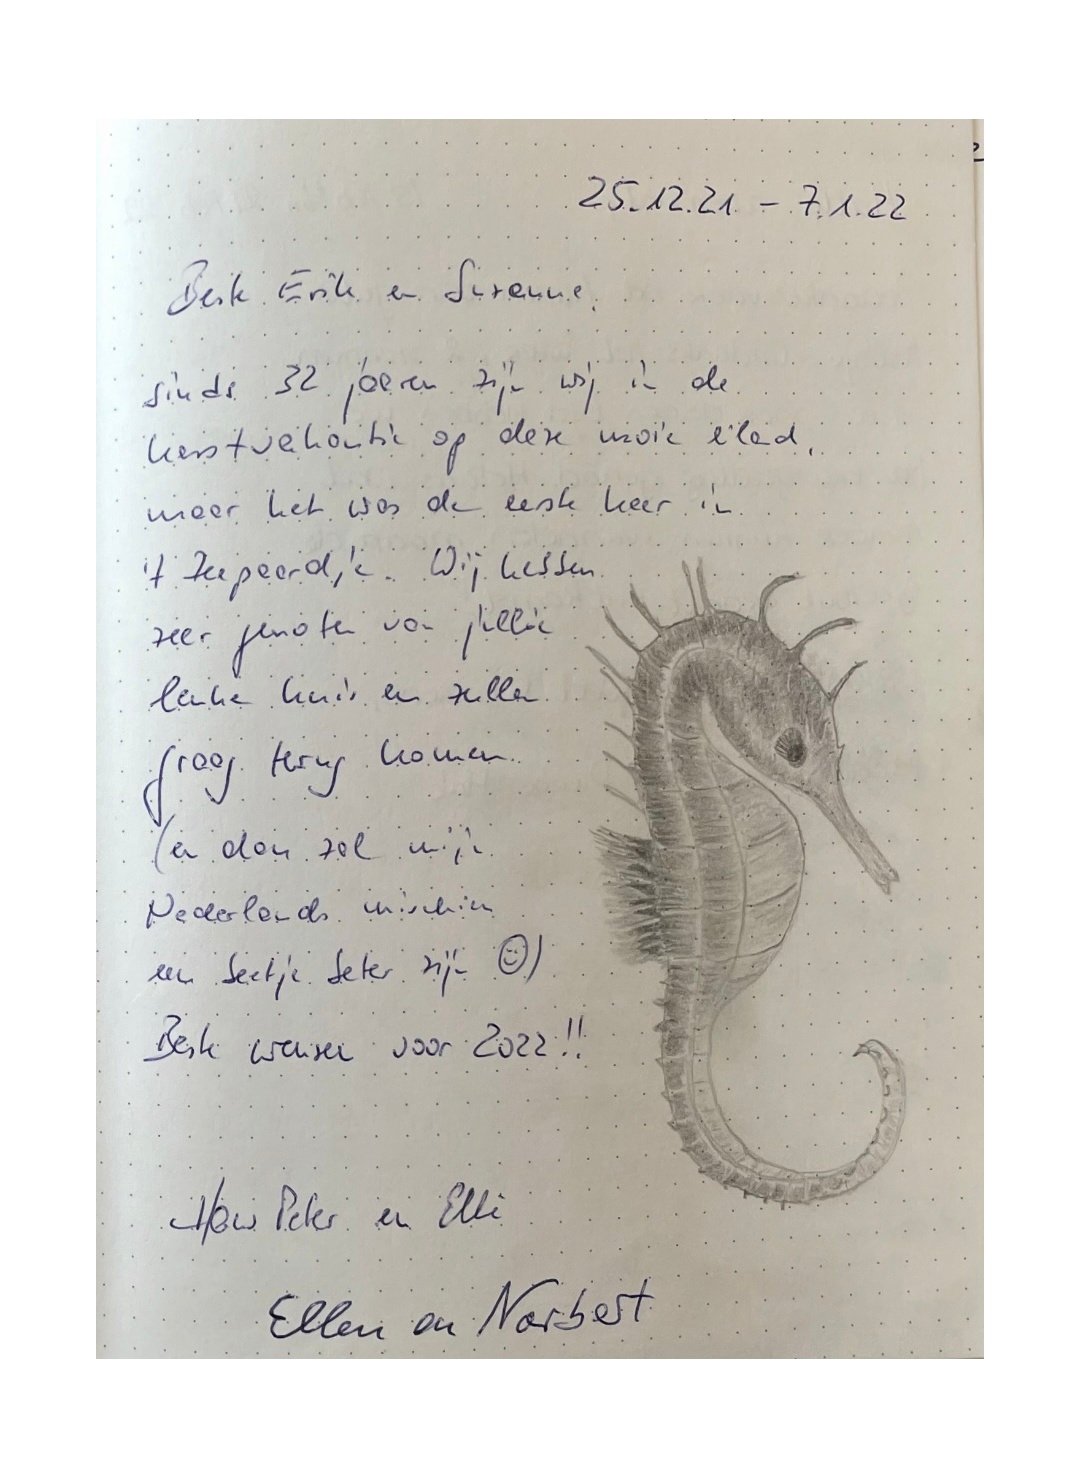 25.12.21 – 7.1.22
Beste Erik en Susanne,
sinds 32 jaaren zijn wij in de
kerstvakantie op deze mooie eilad,
maar het was de eerste keer in
't Zeepaardje. Wij hebben
zeer genoten van jullie
leuke huis en zullen
graag terug komen
(en dan zal mijn
Nederlands mischien
een beetje beter zijn ☺)
Beste wensen voor 2022!!
Hans Peter en Elli
Ellen en Norbert